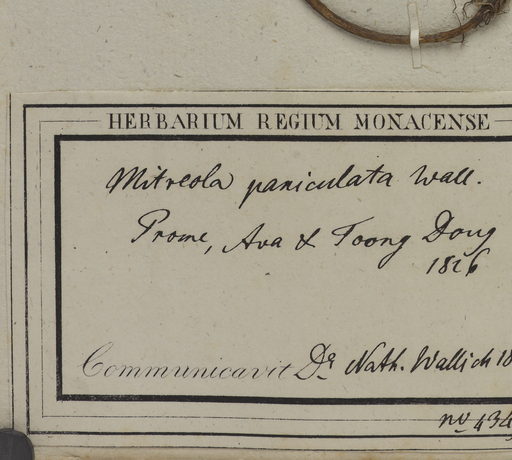 HERBARIUM REGIUM MONACENSE
Mitreola paniculata Wall.
Prome, Ava & Toong Dong
1826
Communicavit Dr Nath. Wallich 18
no 434